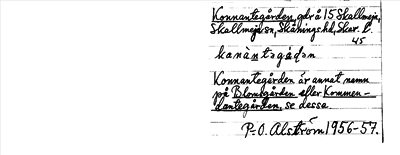 Konnantegården, gd på 15 Skallmeja,
Skallmeja sn, Skånings hd, Skar. l.
45
kanàntəgádən
Konnantegården är annat namn
på Blomsgården eller Kommen-
dantegården, se dessa.
P-O. Alström 1956-57.